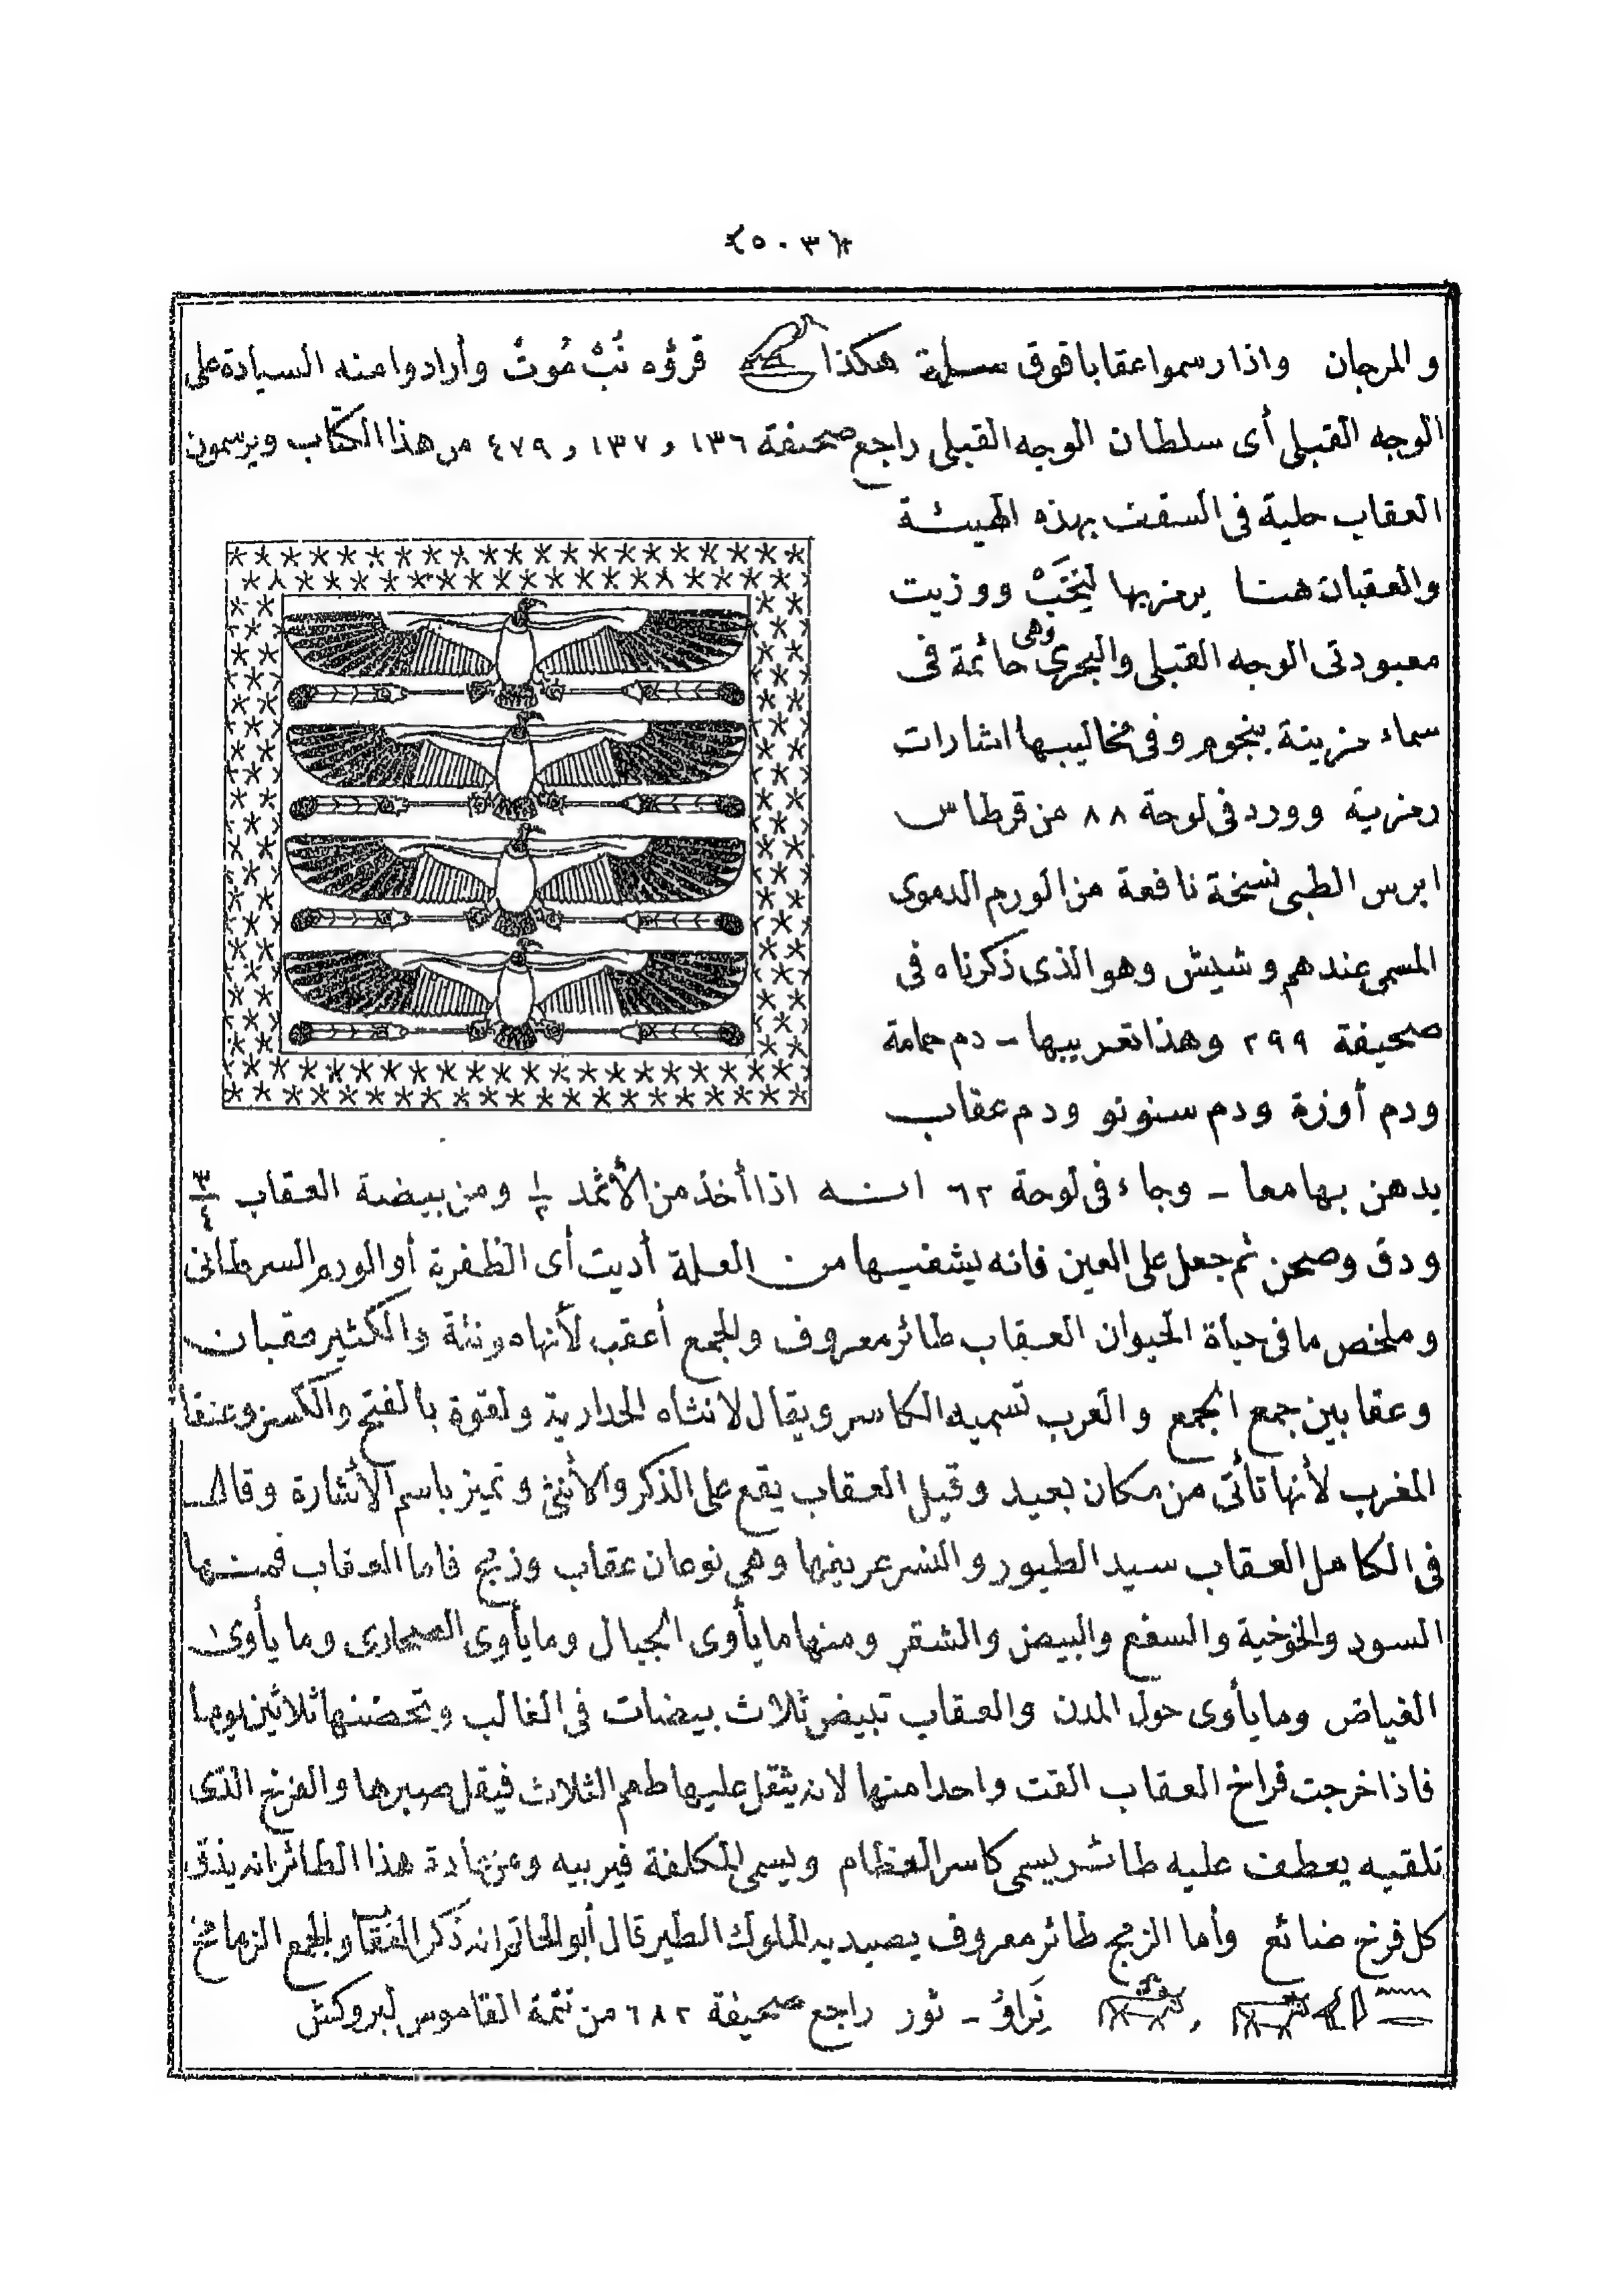 ﴿٥٠٣﴾
والمرجان واذا رسموا عقابا فوق سلة هكذا قرؤه نُبْ مُوتْ وأرادوا منه السيادة على
الوجه القبلى أى سلطان الوجه القبلى راجع صحيفة ١٣٦ و ١٣٧ و ٤٧٩ من هذا الكتاب ويرسمون
العقاب حلية فى السقف بهذه الهيئة
والعقبان هنا يرمز بها لنِخَبْ ووزيت
معبودتى الوجه القبلى والبحرى وهى حائمة فى
سماء مزينة بنجوم وفى مخاليبها اشارات
رمزية وورد فى لوحة ٨٨ من قرطاس
ابرس الطبى نسخة نافعة من الورم الدموى
المسمى عندهم وشيش وهو الذى ذكرناه فى
صحيفة ٢٩٩ وهذا تعريبها - دم حمامة
ودم أوزة ودم سنونو ودم عقاب
يدهن بها معا - وجاء فى لوحة ٦٢ انه اذا أخذ من الأثمد ١/٢ ومن بيضة العقاب ٣/٤
ودق وصحن ثم جعل على العين فانه يشفيها من العلة أديت أى الظفرة أو الورم السرطانى
وملخص ما فى حياة الحيوان العقاب طائر معروف والجمع أعقب لأنها مؤنثة والكثير عقبان
وعقابين جمع الجمع والعرب تسميه الكاسر ويقال لانثاه الخدارية ولقوة بالفتح والكسر وعنقا
المغرب لأنها تأتى من مكان بعيد وقيل العقاب يقع على الذكر والأنثى وتميز باسم الأشارة وقال
فى الكامل العقاب سيد الطيور والنسر عريفها وهى نوعان عقاب وزمج فاما العقاب فمنها
السود والخوخية والسفع والبيض والشقر ومنها ما يأوى الجبال وما يأوى الصحارى وما يأوى
الغياض وما يأوى حول المدن والعقاب تبيض ثلاث بيضات فى الغالب وتحضنها ثلاثين يوما
فاذا خرجت فراخ العقاب القت واحدا منها لانه يثقل عليها طعم الثلاث فيقل صبرها والفرخ الذى
تلقيه يعطف عليه طائر يسمى كاسر العظام ويسمى المكلفة فيربيه ومن عادة هذا الطائر انه يذق
كل فرخ ضائع وأما الزمج طائر معروف يصيد به الملوك الطير قال أبو الحاتم انه ذكر العقاب والجمع الزمامخ
نِرَاوُ - ثور راجع صحيفة ٦٨٢ من تتمة القاموس لبروكش